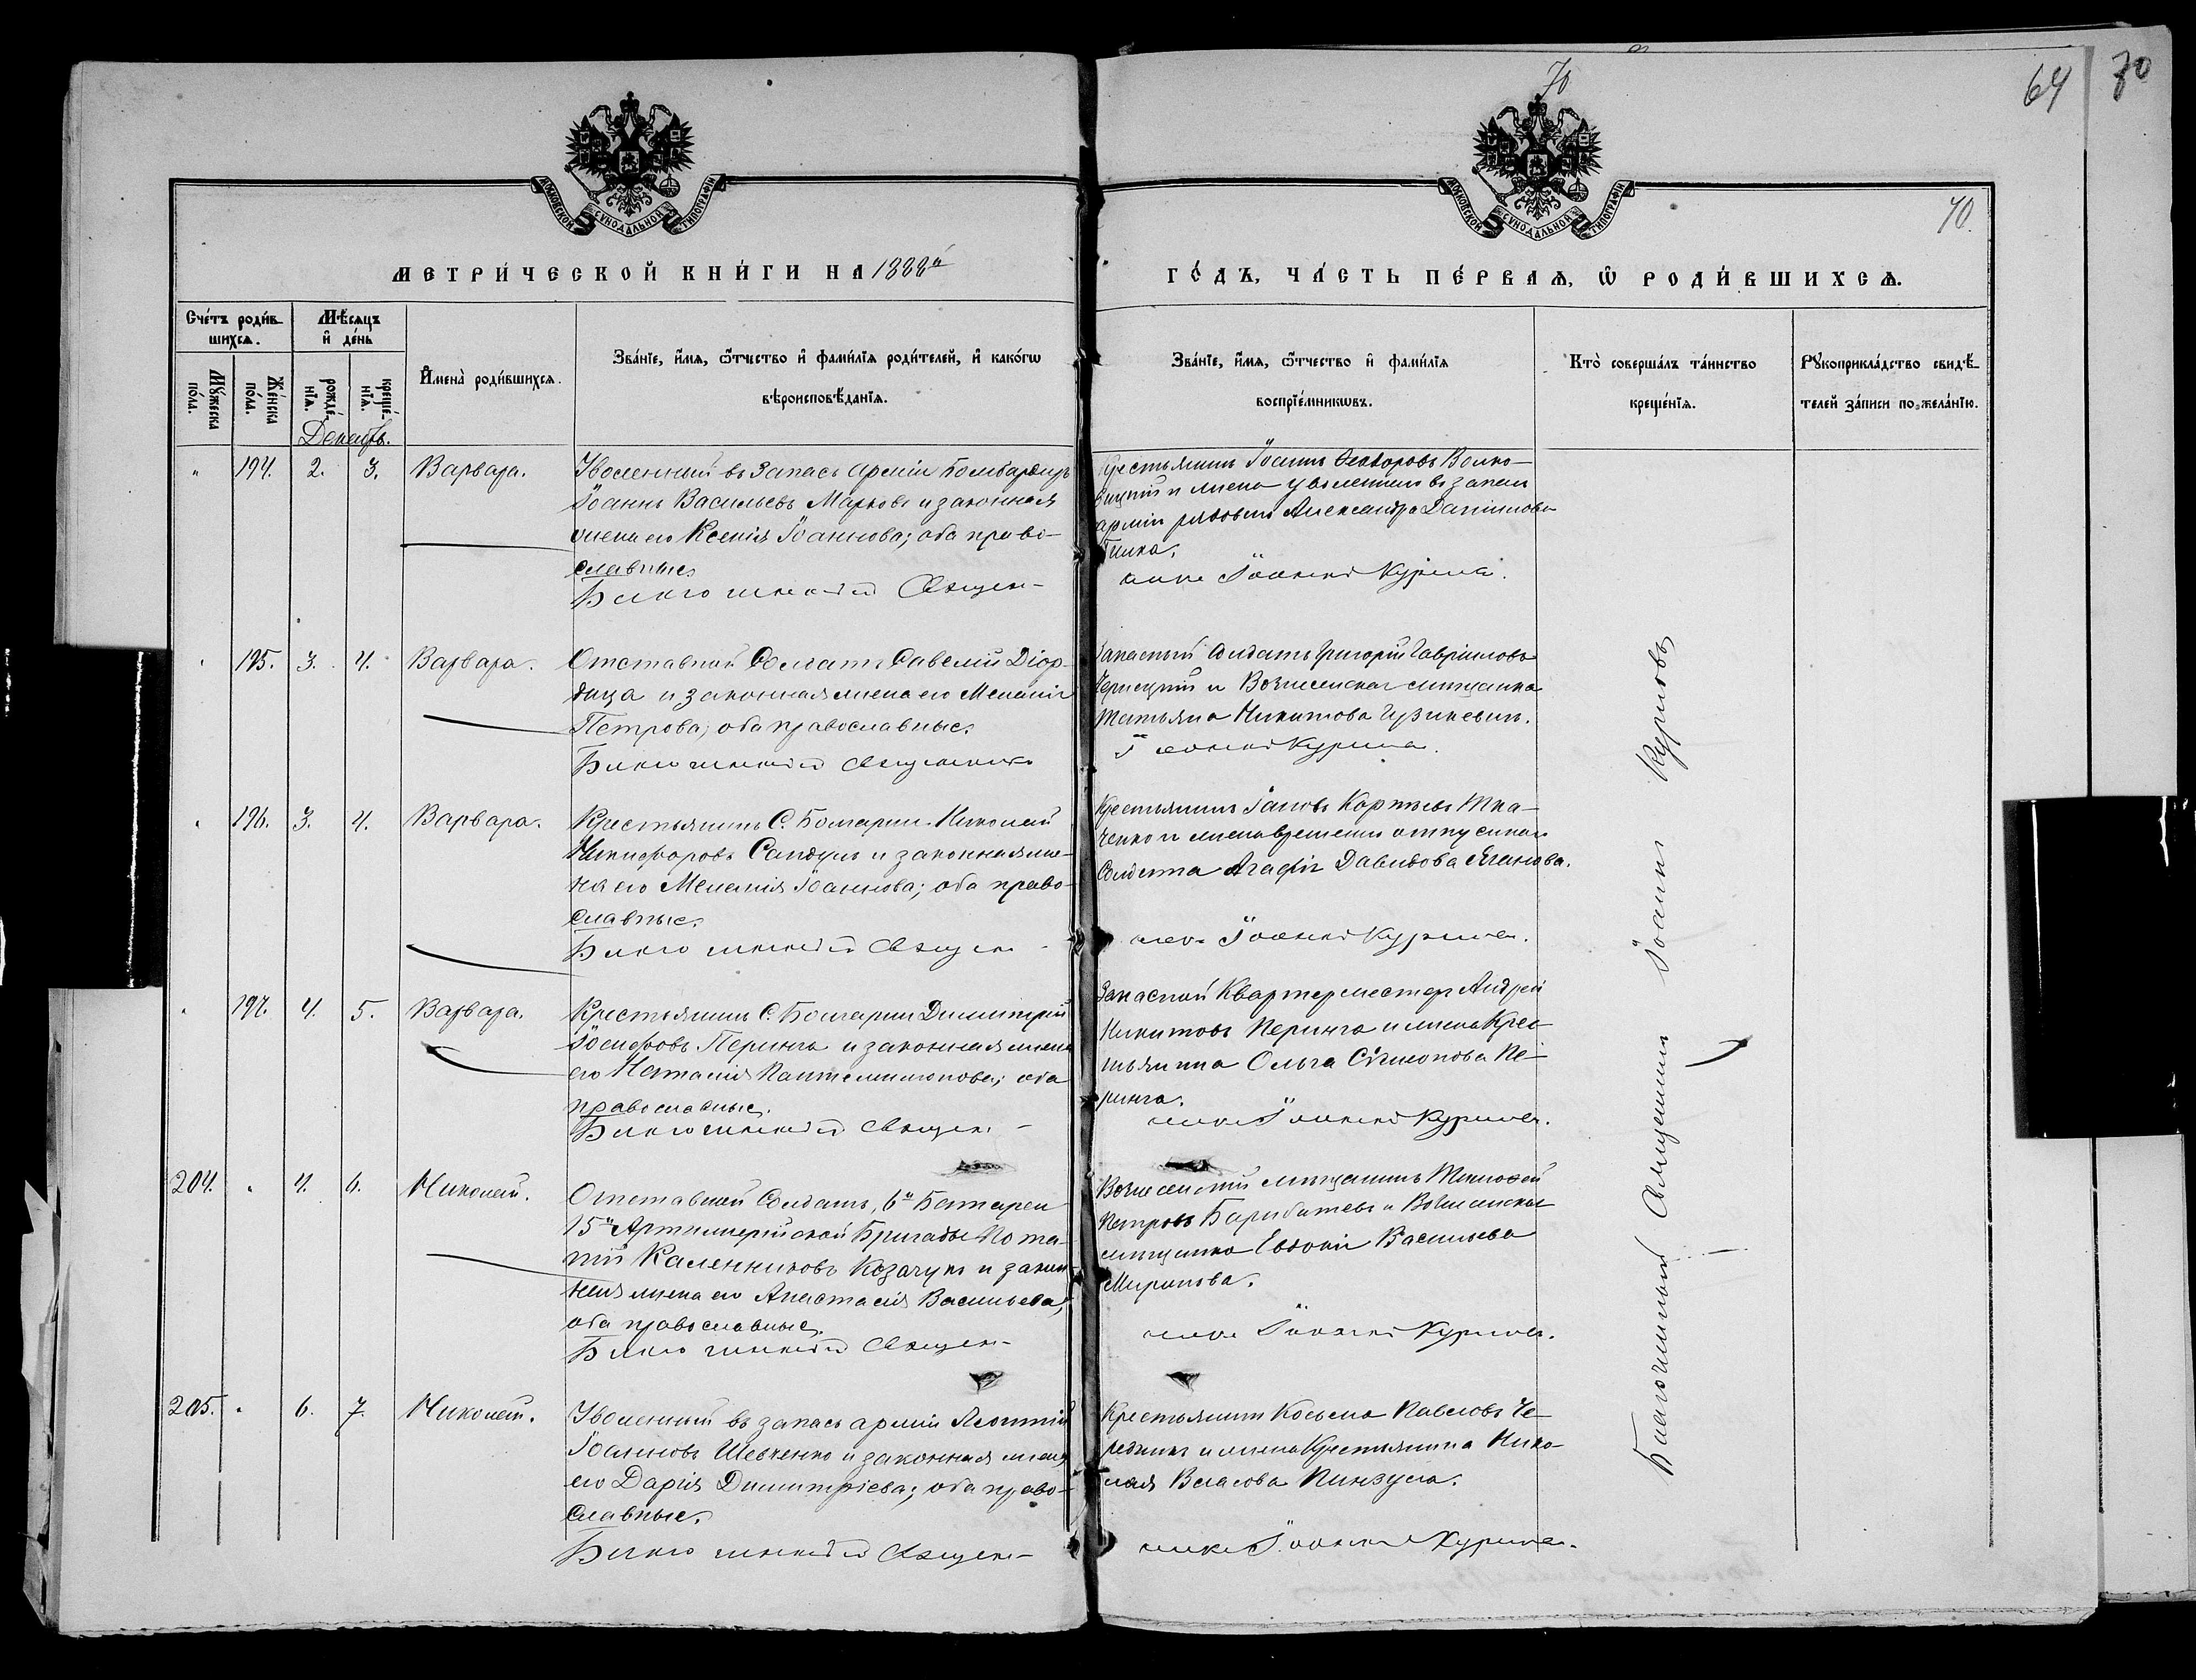 70
64
70
70.
МОСКОВСКОЙ СѴНОДАЛЬНОЙ ТИПОГРАФІИ
МОСКОВСКОЙ СѴНОДАЛЬНОЙ ТИПОГРАФІИ
МЕТРИ́ЧЕСКОЙ КНИ́ГИ НА 1888й
ГО́ДЪ, ЧА́СТЬ ПЕ́РВАѦ, Ѽ РОДИ́ВШИХСѦ.
Сче́тъ роди́в-
шихсѧ.
Мꙋ́жеска
по́ла.
Же́нска
по́ла.
Мѣ́сѧцъ
и҆ де́нь
рожде́-
нїѧ.
креще́-
нїѧ.
Декабрь.
И҆мена̀ роди́вшихсѧ.
Зва́нїе, и҆́мѧ, ѻ҆́тчество и҆ фами́лїѧ роди́телей, и҆ како́гѡ
вѣроисповѣ́данїѧ.
Зва́нїе, и҆́мѧ, ѻ҆́тчество и҆ фами́лїѧ
воспрїе́мникѡвъ.
Кто̀ соверша́лъ та́инство
креще́нїѧ.
Рꙋкоприкла́дство свидѣ́-
телей за́писи по жела́нїю.
" 194. 2. 3. Варвара.
Уволенный въ запасъ арміи Бомбардиръ
Іоаннъ Васильевъ Марковъ и законная
жена его Ксенія Іоаннова; оба право-
славные.
Благочинный Священ-
Крестьянинъ Іоаннъ Ѳеодоровъ Волко-
вицкій и жена уволеннаго въ запасъ
арміи рядового Александра Даніилова
никъ Іоаннъ Куриловъ.
" 195. 3. 4. Варвара.
Отставной Солдатъ Савелій Діор-
дица и законная жена его Меланія
Петрова; оба православные.
Благочинный Священникъ
Запасный Солдатъ Григорій Гавріиловъ
Чернецкій и Вознесенская мѣщанка
Татьяна Никитова
Іоаннъ Куриловъ.
" 196. 3. 4. Варвара.
Крестьянинъ С. Болгарки Николай
Никифоровъ Сандулъ и законная же-
на его Меланія Іоаннова; оба право-
славные.
Благочинный Священ-
Крестьянинъ Іаковъ Карповъ Тка-
ченко и жена временно отпускнаго
Солдата Агафія Давидова
никъ Іоаннъ Куриловъ.
" 197. 4. 5. Варвара.
Крестьянинъ С. Болгарки Димитрій
Іосифовъ Перинга и законная жена
его Наталія Пантелеимонова; оба
православные.
Благочинный Священ-
Запасной Квартермистеръ Андрей
Никитовъ Перинга и жена Крес-
тьянина Ольга Симонова Пе-
ринга.
никъ Іоаннъ Куриловъ.
204. " 4. 6. Николай.
Отставной Солдатъ, 6й Батареи
15й Артиллерійской Бригады Пота-
пій Каленниковъ Козачукъ и закон-
ная жена его Анастасія Васильева;
оба православные.
Благочинный Священ-
Вознесенскій мѣщанинъ Тимофей
Петровъ и Вознесенская
мѣщанка Евдокія Васильева
Миронова.
никъ Іоаннъ Куриловъ.
205. " 6. 7. Николай.
Уволенный въ запасъ арміи Леонтій
Іоанновъ Шевченко и законная жена
его Дарія Димитріева; оба право-
славные.
Благочинный Священ-
Крестьянинъ Косьма Павловъ Че-
редникъ и жена Крестьянина Нико-
лая Власова Пинзула.
никъ Іоаннъ Куриловъ.
Благочинный Священникъ Іоаннъ Куриловъ